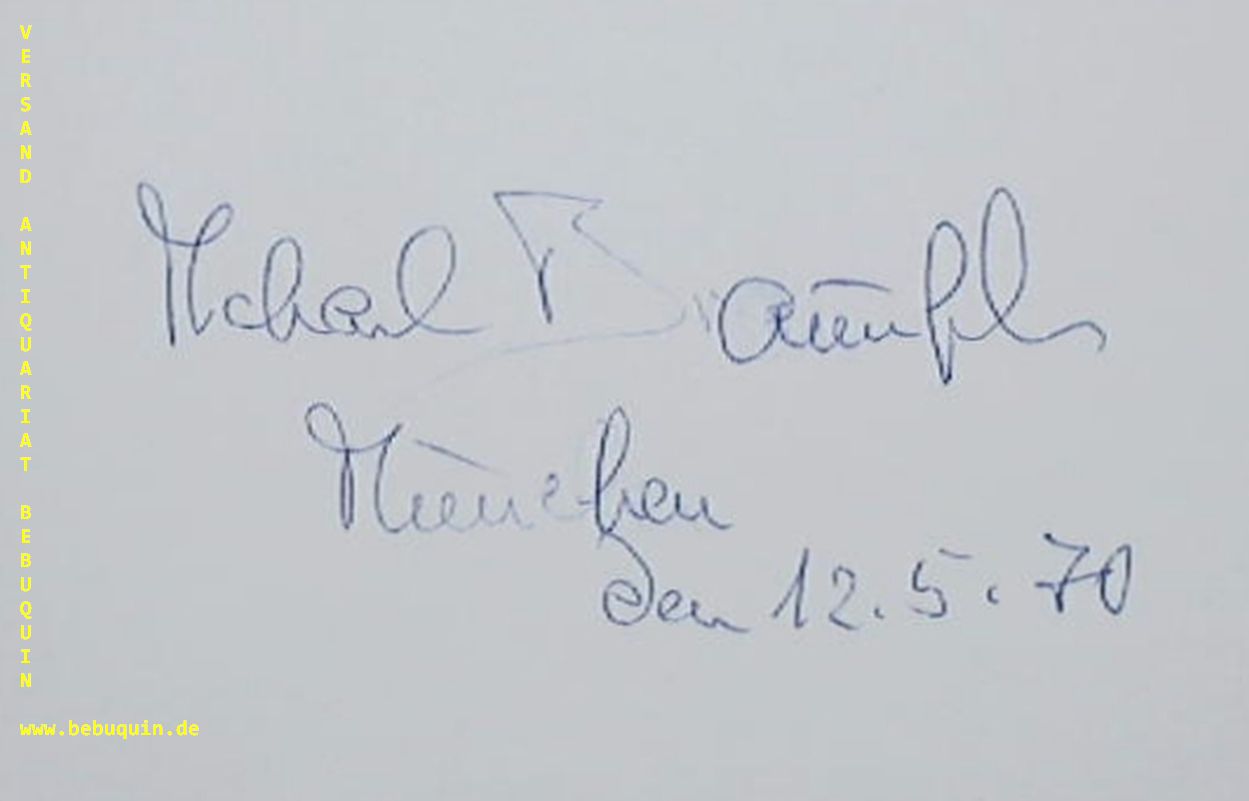 VERSAND ANTIQUARIAT BEBUQUIN
Michael
München
den 12.5.70
www.bebuquin.de